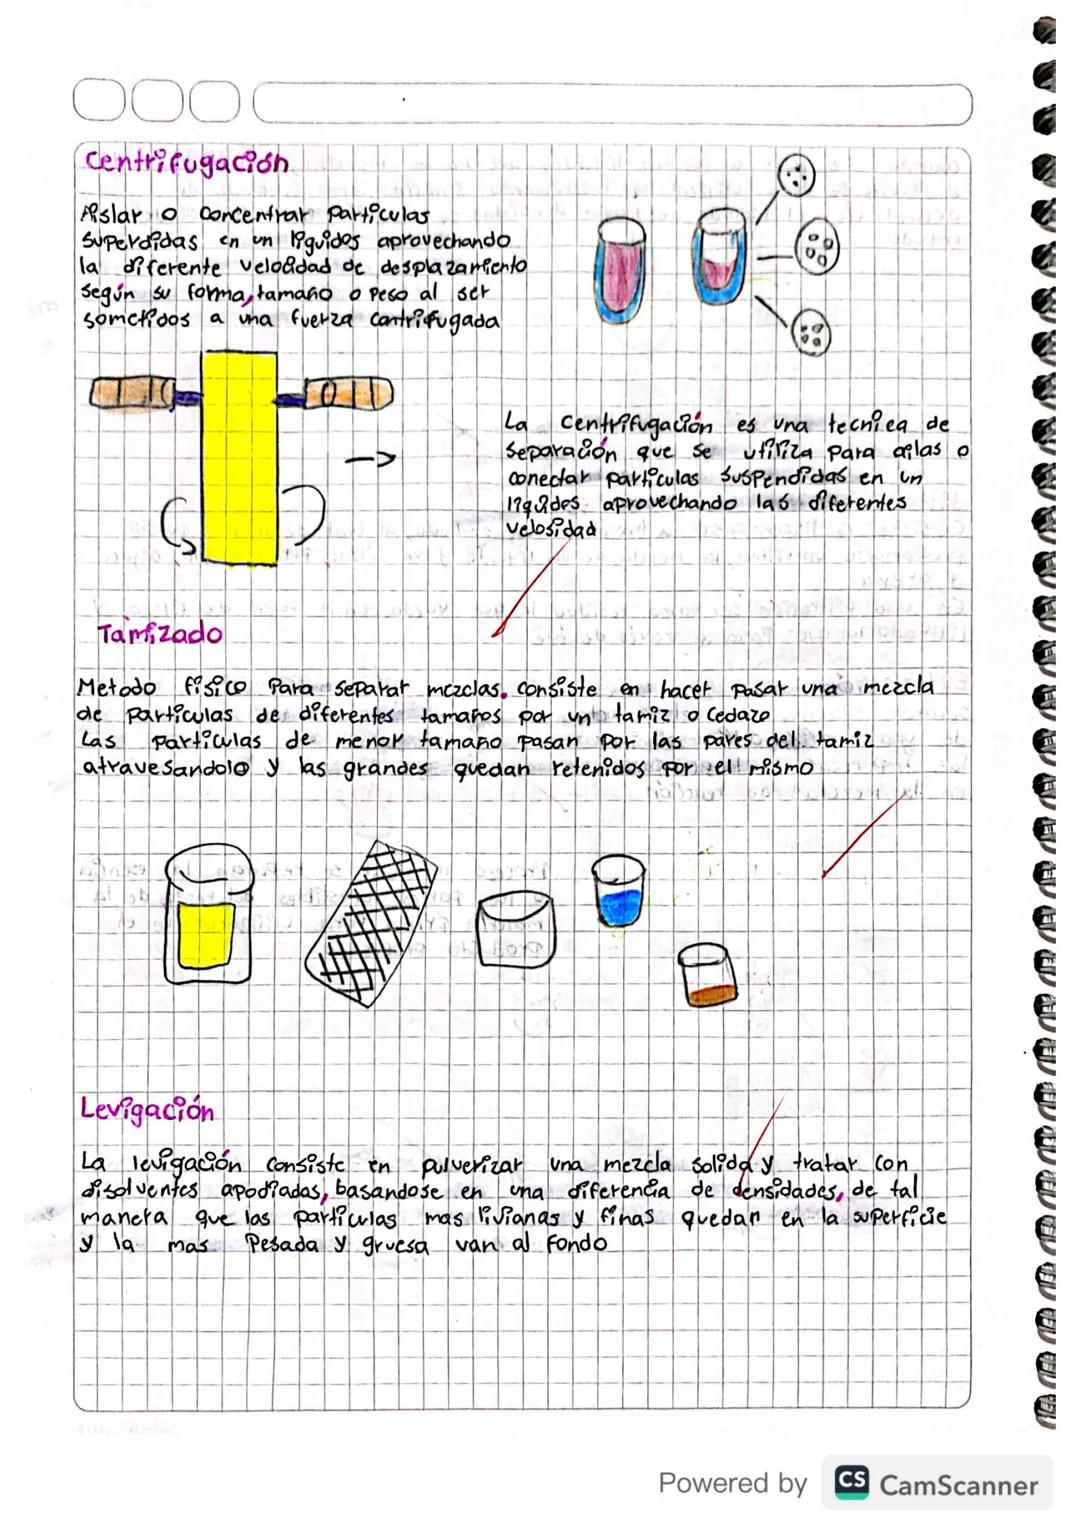 Centrifugación
Aislar o concentrar Partículas
Superdidas en un líguidos aprovechando
la diferente velocidad de desplazamiento
Según su forma, tamaño o peso al ser
sometidos a una fuerza cantrifugada
La Centrifugación es una tecnica de
Separación que se utiliza para ailas o
conectar partículas suspendidas en un
líquides aprovechando las diferentes
velosidad
Tamizado
Metodo físico Para separar mezclas. consiste en hacer pasar una mezcla
de Particulas de diferentes tamaños por un tamiz o Cedazo
Las particulas de menor tamaño pasan por las pares del tamiz
atravesandolo y las grandes quedan retenidos por el mismo
Levigación
La levigación consiste en pulverizar una mezcla solida y tratar con
disolventes apodiadas, basandose en una diferencia de densidades, de tal
manera que las partículas mas livianas y finas quedan en la superficie
y la mas Pesada y gruesa van al fondo
Powered by CS CamScanner